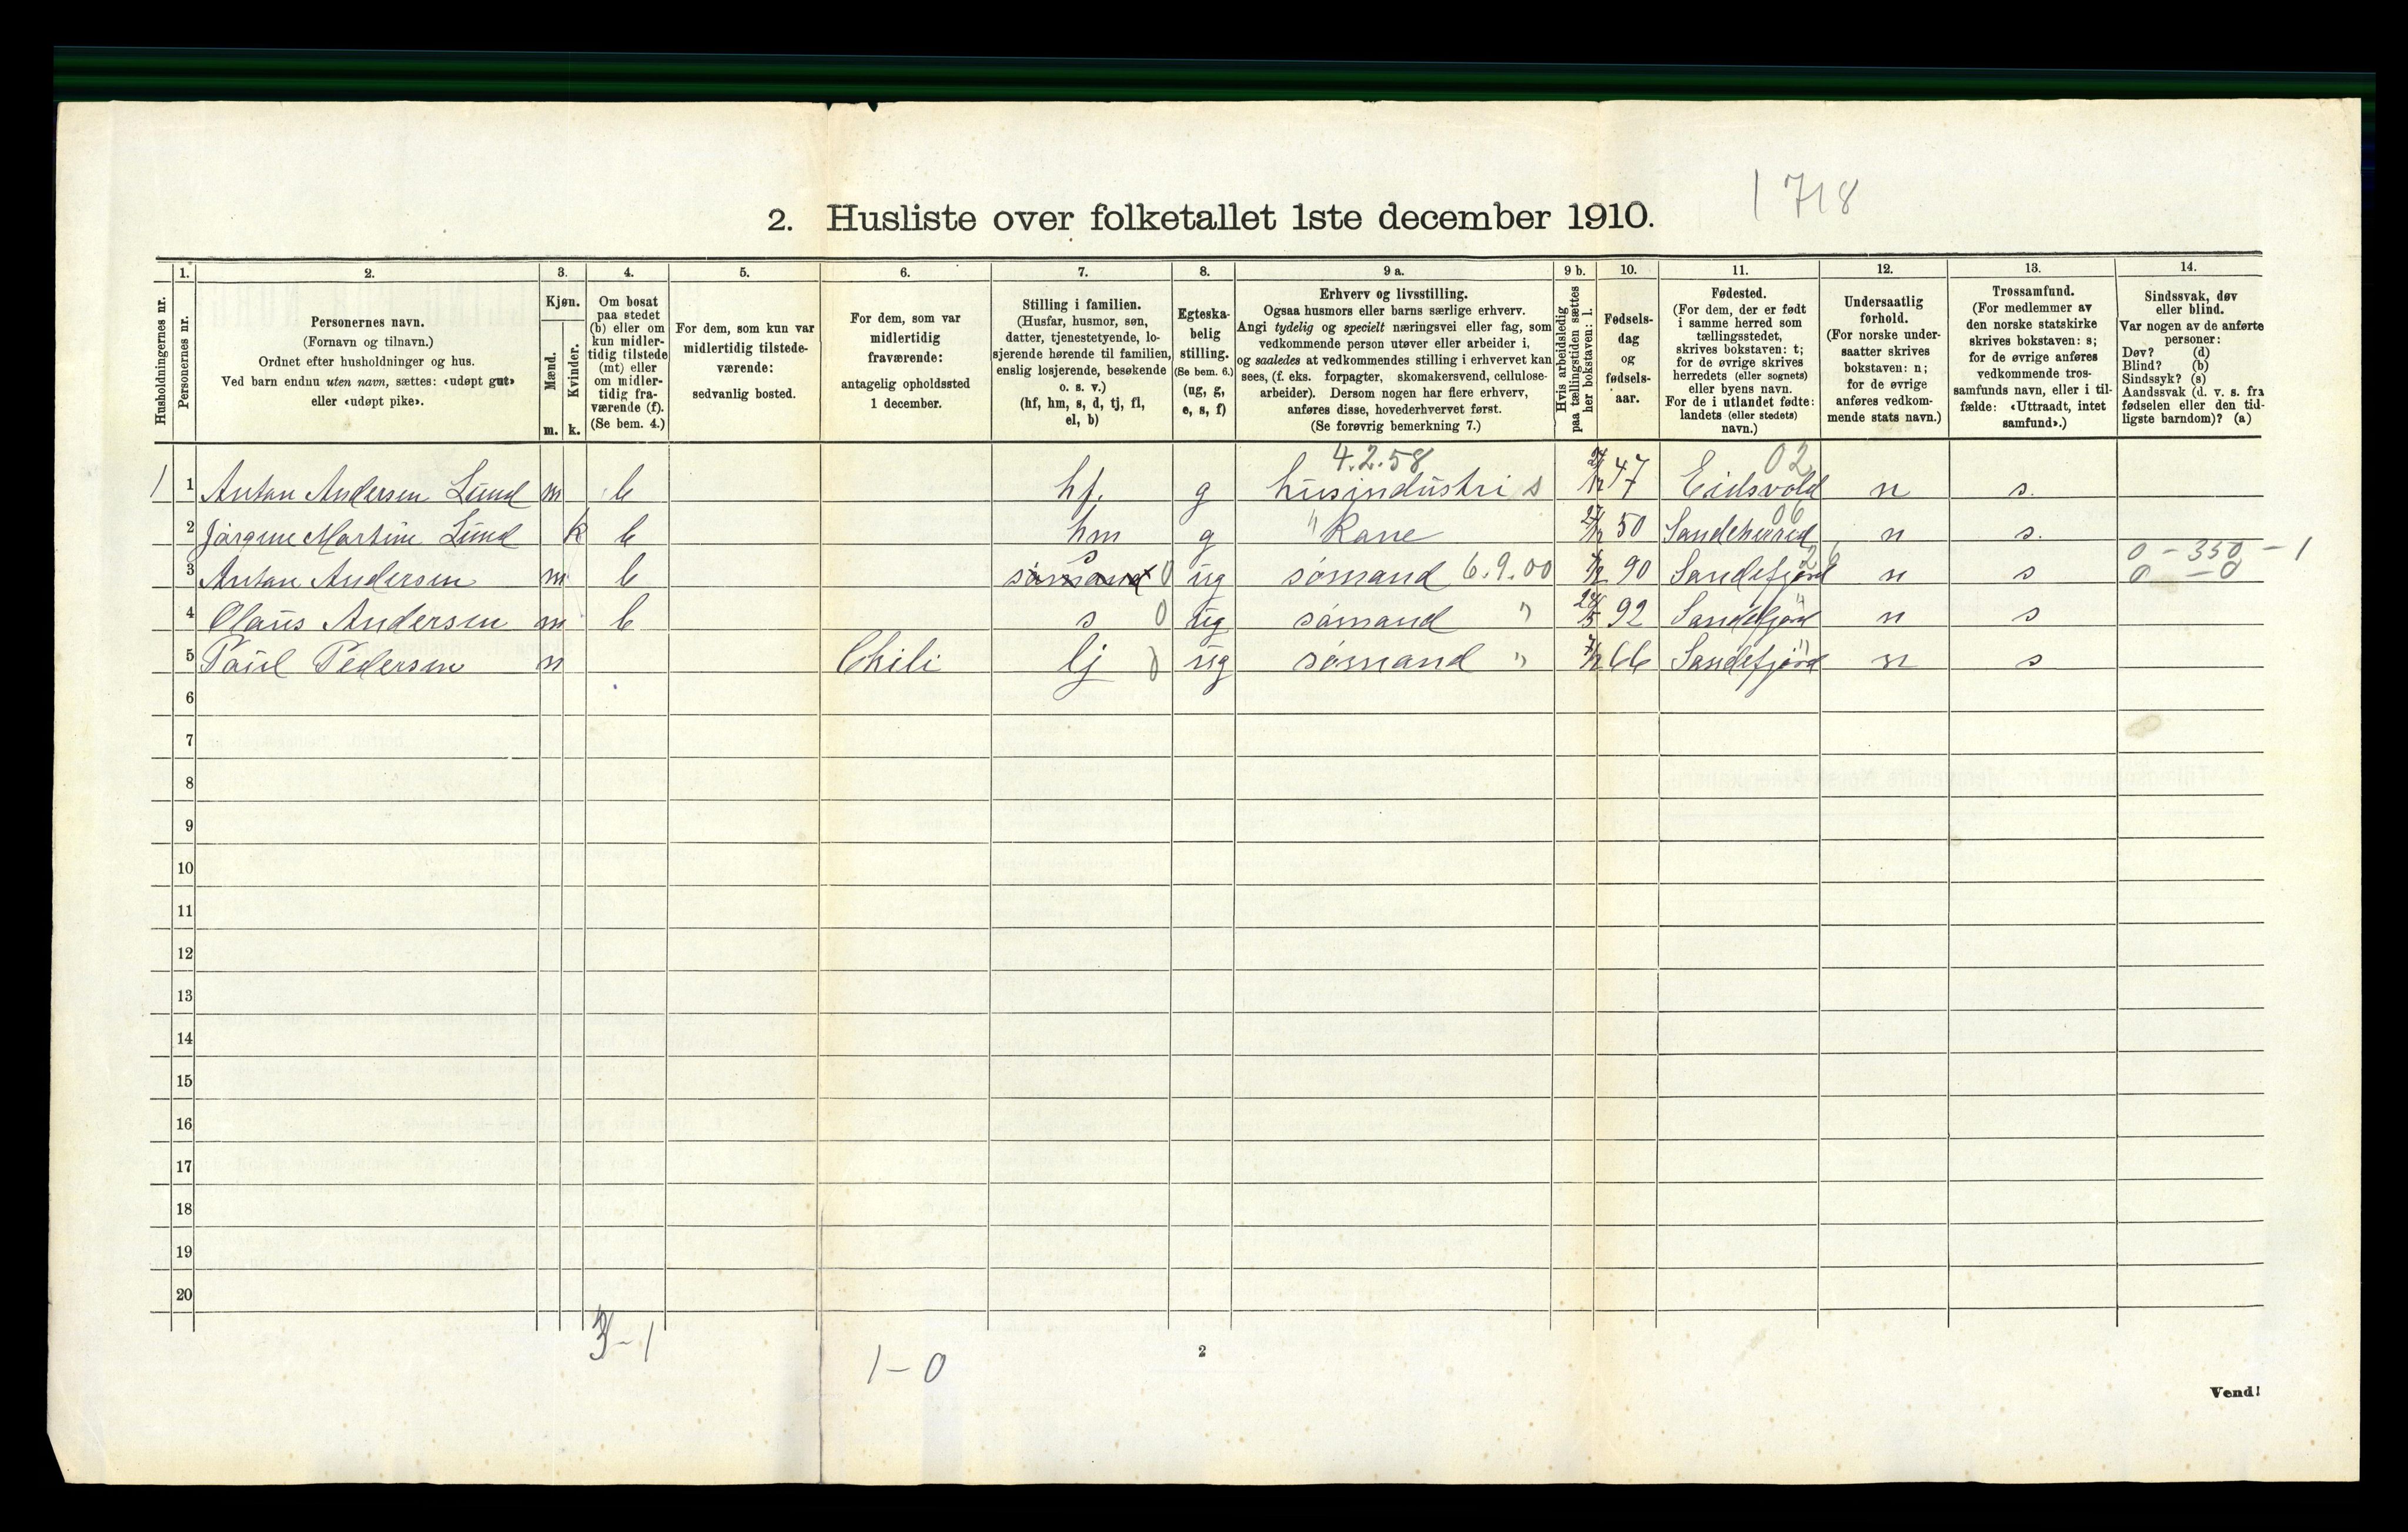 1718
2. Husliste over folketallet 1ste december 1910.
Husholdningernes nr.
1. Personernes nr.
2. Personernes navn.
(Fornavn og tilnavn.)
Ordnet efter husholdninger og hus.
Ved barn endnu uten navn, sættes: «udøpt gut»
eller «udøpt pike».
3. Kjøn.
Mænd. Kvinder.
m. k.
4. Om bosat
paa stedet
(b) eller om
kun midler-
tidig tilstede
(mt) eller
om midler-
tidig fra-
værende (f).
(Se bem. 4.)
5. For dem, som kun var
midlertidig tilstede-
værende:
sedvanlig bosted.
6. For dem, som var
midlertidig
fraværende:
antagelig opholdssted
1 december.
7. Stilling i familien.
(Husfar, husmor, søn,
datter, tjenestetyende, lo-
sjerende hørende til familien,
enslig losjerende, besøkende
o. s. v.)
(hf, hm, s, d, tj, fl,
el, b)
8. Egteska-
belig
stilling.
(Se bem. 6.)
(ug, g,
e, s, f)
9 a. Erhverv og livsstilling.
Ogsaa husmors eller barns særlige erhverv.
Angi tydelig og specielt næringsvei eller fag, som
vedkommende person utøver eller arbeider i,
og saaledes at vedkommendes stilling i erhvervet kan
sees, (f. eks. forpagter, skomakersvend, cellulose-
arbeider). Dersom nogen har flere erhverv,
anføres disse, hovederhvervet først.
(Se forøvrig bemerkning 7.)
9 b. Hvis arbeidsledig
paa tællingstiden sættes
her bokstaven: l.
10. Fødsels-
dag
og
fødsels-
aar.
11. Fødested.
(For dem, der er født
i samme herred som
tællingsstedet,
skrives bokstaven: t;
for de øvrige skrives
herredets (eller sognets)
eller byens navn.
For de i utlandet fødte:
landets (eller stedets)
navn.)
12. Undersaatlig
forhold.
(For norske under-
saatter skrives
bokstaven: n;
for de øvrige
anføres vedkom-
mende stats navn.)
13. Trossamfund.
(For medlemmer av
den norske statskirke
skrives bokstaven: s;
for de øvrige anføres
vedkommende tros-
samfunds navn, eller i til-
fælde: «Uttraadt, intet
samfund».)
14. Sindssvak, døv
eller blind.
Var nogen av de anførte
personer:
Døv? (d)
Blind? (b)
Sindssyk? (s)
Aandssvak (d. v. s. fra
fødselen eller den tid-
ligste barndom)? (a)
4.2.58 02
1 1 Antan Andersen Lund m b hf. g husindustri s 47 Eidsvold n s.
06
2 Jørgine Martine Lund k b hm g " Kone 50 Sandeherred n s.
0 - 350 - 1
3 Antan Andersen m b sømand s 0 ug sømand 6.9.00 90 Sandefjord 26 n s 0 - 0
4 Olaus Andersen m b s 0 ug sømand " 92 Sandefjord " n s
5 Paul Pedersen m Chili lj 0 ug sømand " 66 Sandefjord " n s
6
7
8
9
10
11
12
13
14
15
16
17
18
19
20
3-1
1-0
2
Vend!